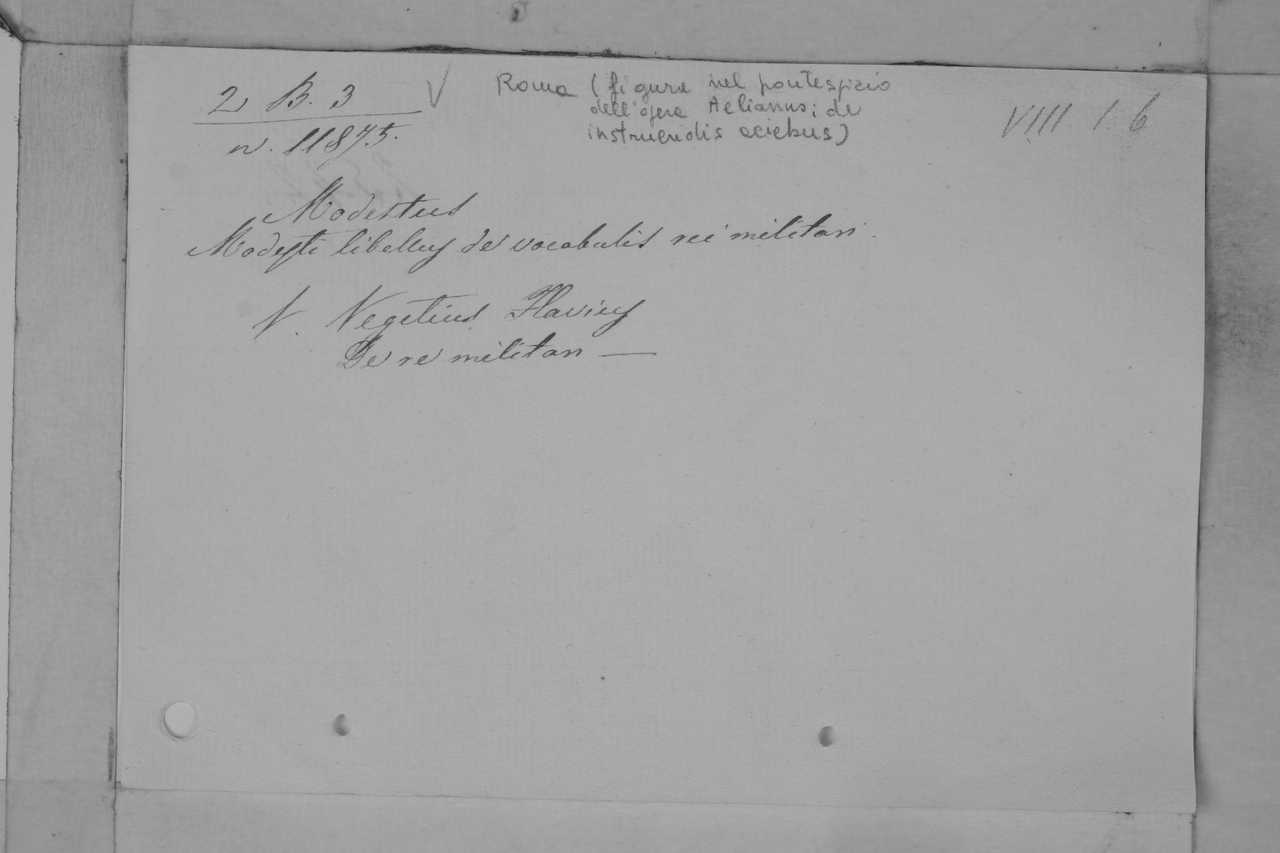 2 B. 3
n. 11875.
V
Roma (figura nel frontespizio
dell'opera Aelianus; de
instruendis aciebus)
VIII 1 6
Modestus
Modesti libellus de vocabulis rei militari.
V. Vegetius Flavius
De re militari —